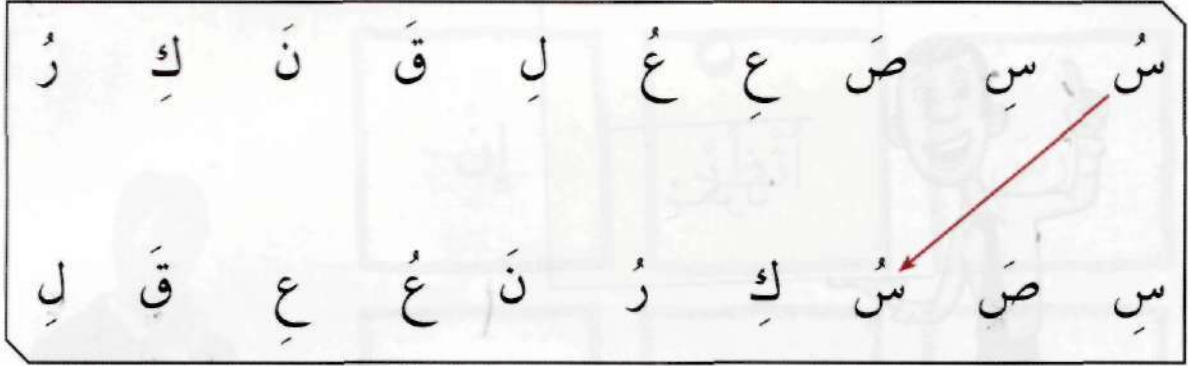 سُ سِ صَ عِ عُ لِ قَ نَ كِ رُ
سِ صَ سُ كِ رُ نَ عُ عِ قَ لِ